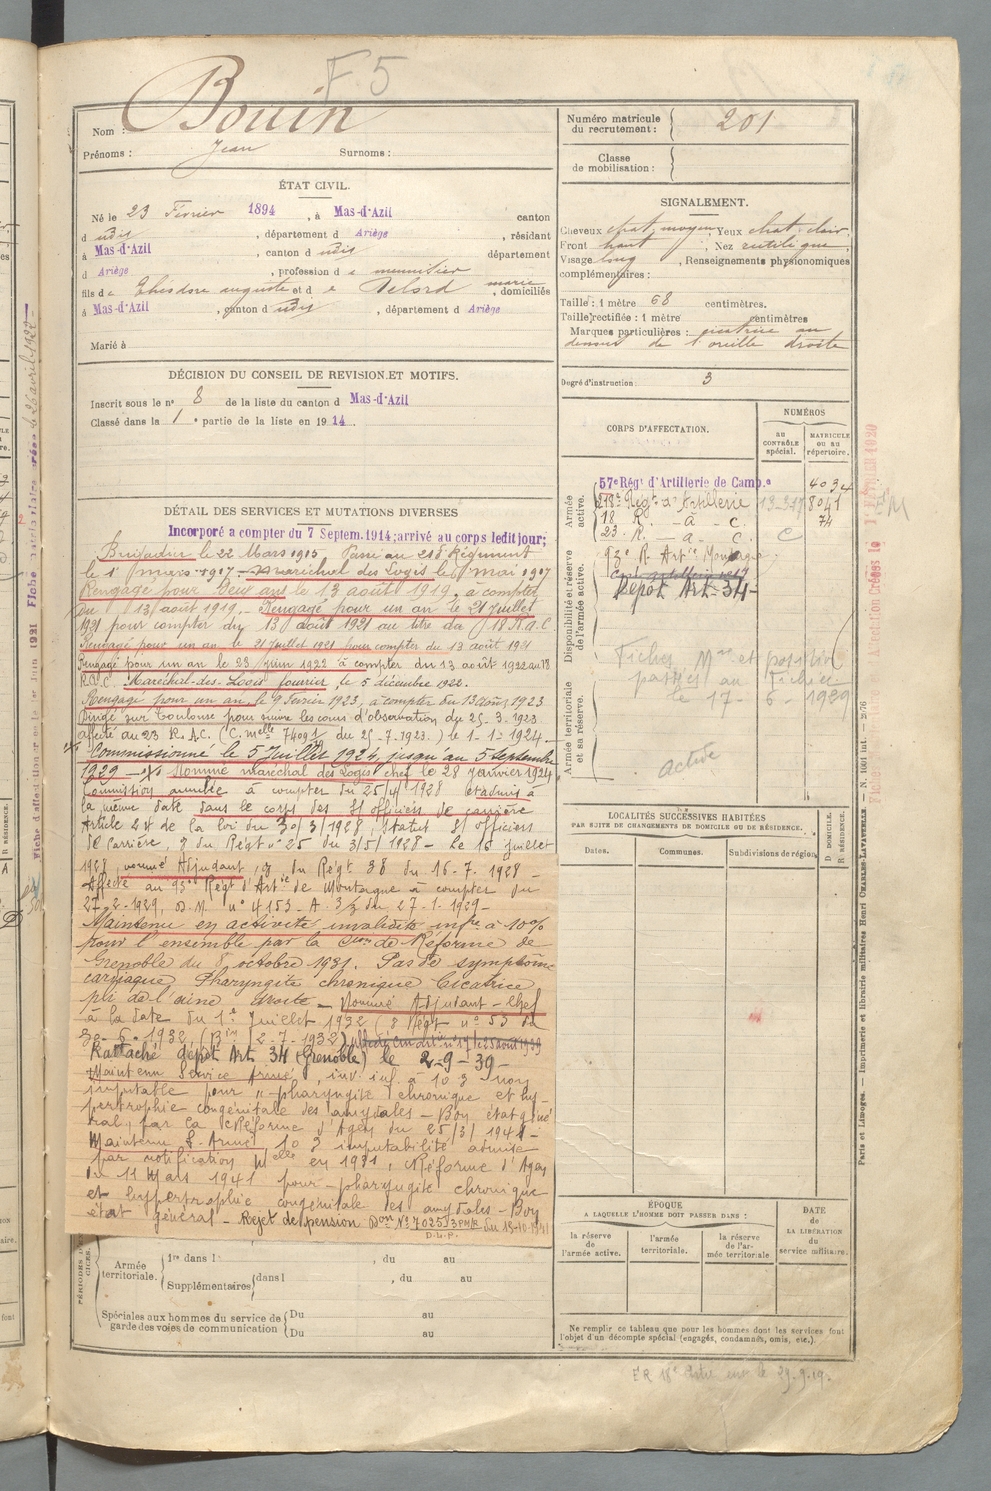 F. 5
Nom : Bouin
Prénoms : Jean Surnoms :
Numéro matricule du recrutement : 201
Classe de mobilisation :
ÉTAT CIVIL.
Né le 23 Février 1894, à Mas-d'Azil canton
d udis, département d Ariège, résidant
à Mas-d'Azil, canton d udis département
d Ariège, profession d e meunitier
fils d e Théodore auguste et d e Delord marie, domiciliés
à Mas-d'Azil, canton d udis, département d Ariège
Marié à
SIGNALEMENT.
Cheveux chat. moyen Yeux chat. clair
Front haut, Nez rectiligne
Visage long, Renseignements physionomiques
complémentaires :
Taille : 1 mètre 68 centimètres.
Taille rectifiée : 1 mètre centimètres
Marques particulières : cicatrice au
dessous de l'oreille droite
Degré d'instruction : 3
DÉCISION DU CONSEIL DE REVISION ET MOTIFS.
Inscrit sous le n° 8 de la liste du canton d Mas-d'Azil
Classé dans la 1e partie de la liste en 1914
DÉTAIL DES SERVICES ET MUTATIONS DIVERSES
Incorporé a compter du 7 Septem. 1914; arrivé au corps ledit jour;
Brigadier le 22 Mars 1915 Passé au 218 Régiment
le 1 mars 1917 - Maréchal des Logis le 8 mai 1917
Rengagé pour Deux ans le 13 août 1919, à compter
du 13 août 1919. - Rengagé pour un an le 21 Juillet
1921 pour compter du 13 août 1921 au titre du 18 R.a.C
Rengagé pour un an le 21 Juillet 1921 pour compter du 13 août 1921
Rengagé pour un an le 23 Juin 1922 à compter du 13 août 1922 au 18
R.A.C. Maréchal-des-Logis fourrier, le 5 décembre 1922.
Rengagé pour un an, le 9 Février 1923, à compter du 13 août 1923
Dirigé sur Toulouse pour suivre les cours d'observation du 25-3-1923
affecté au 23 R.A.C. (C. melle 7409 1/ du 25-7-1923.) le 1-1-1924.
Commissionné le 5 Juillet 1924, jusqu'au 5 Septembre
1929 - Nommé maréchal des Logis chef le 28 janvier 1924
Commission annulée à compter du 25/4/1928 et admis à
la même date dans le corps des s/ officiers de carrière
Article 24 de la loi du 30/3/1928, Statut s/ officiers
de carrière, 9 du Régt n° 25 du 3/5/1928 - Le 16 juillet
1928, nommé Adjudant, 9 du Régt 38 du 16-7-1928 -
Affecté au 93e Régt d'Artie de Montagne à compter du
27-2-1929, D.M. n° 4153-A. 3/3 du 27-1-1929 -
Maintenu en activité invalidité infre à 10%
pour l'ensemble par la Cion de Réforme de
Grenoble du 8 octobre 1931. Pas de symptôme
cardiaque Pharyngite chronique Cicatrice
pli de l'aine droite - Nommé Adjudant-Chef
à la date du 1er Juillet 1932 (9 Régt n° 53 du
30-6-1932,
Rattaché dépôt Art. 34 (Grenoble) le 2-9-39 -
Maintenu Service Armé, inv. inf. à 10 % non
imputable pour "pharyngite chronique et hy-
pertrophie congénitale des amygdales - Bon état géné
ral, par Con Réforme d'Agen du 25/3/1941 -
Maintenu S. Armé 10 % imputabilité admise
par notification Melle en 1931, Réforme d'Agen
du 11 Mars 1941 pour - pharyngite chronique
et hypertrophie congénitale des amygdales - Bon
état général - Rejet de pension Don N° 7025 du 13-10-1941
D.L.P.
CORPS D'AFFECTATION.
NUMÉROS
au CONTRÔLE spécial.
MATRICULE ou au répertoire.
Armée active.
57e Régt d'Artillerie de Camp.e 4034
218e Régt d'Artillerie 8041
18 R. - a - C. 74
23 R. - a - C.
Disponibilité et réserve de l'armée active.
93e R. Artie Montagne
Dépôt Art. 34
Armée territoriale et sa réserve.
Fiches Mre et position
passées au fichier
le 17-6-1929
active
LOCALITÉS SUCCESSIVES HABITÉES
PAR SUITE DE CHANGEMENTS DE DOMICILE OU DE RÉSIDENCE.
Dates. Communes. Subdivisions de région
D. DOMICILE. R. RÉSIDENCE.
ÉPOQUE
A LAQUELLE L'HOMME DOIT PASSER DANS :
DATE DE LA LIBÉRATION du service militaire.
la réserve de l'armée active.
l'armée territoriale.
la réserve de l'armée territoriale
Ne remplir ce tableau que pour les hommes dont les services font
l'objet d'un décompte spécial (engagés, condamnés, omis, etc.).
Armée territoriale.
1re dans l , du au
Supplémentaires dans l , du au
Spéciales aux hommes du service de garde des voies de communication
Du au
Du au
Paris et Limoges. — Imprimerie et librairie militaires Henri CHARLES-LAVAUZELLE